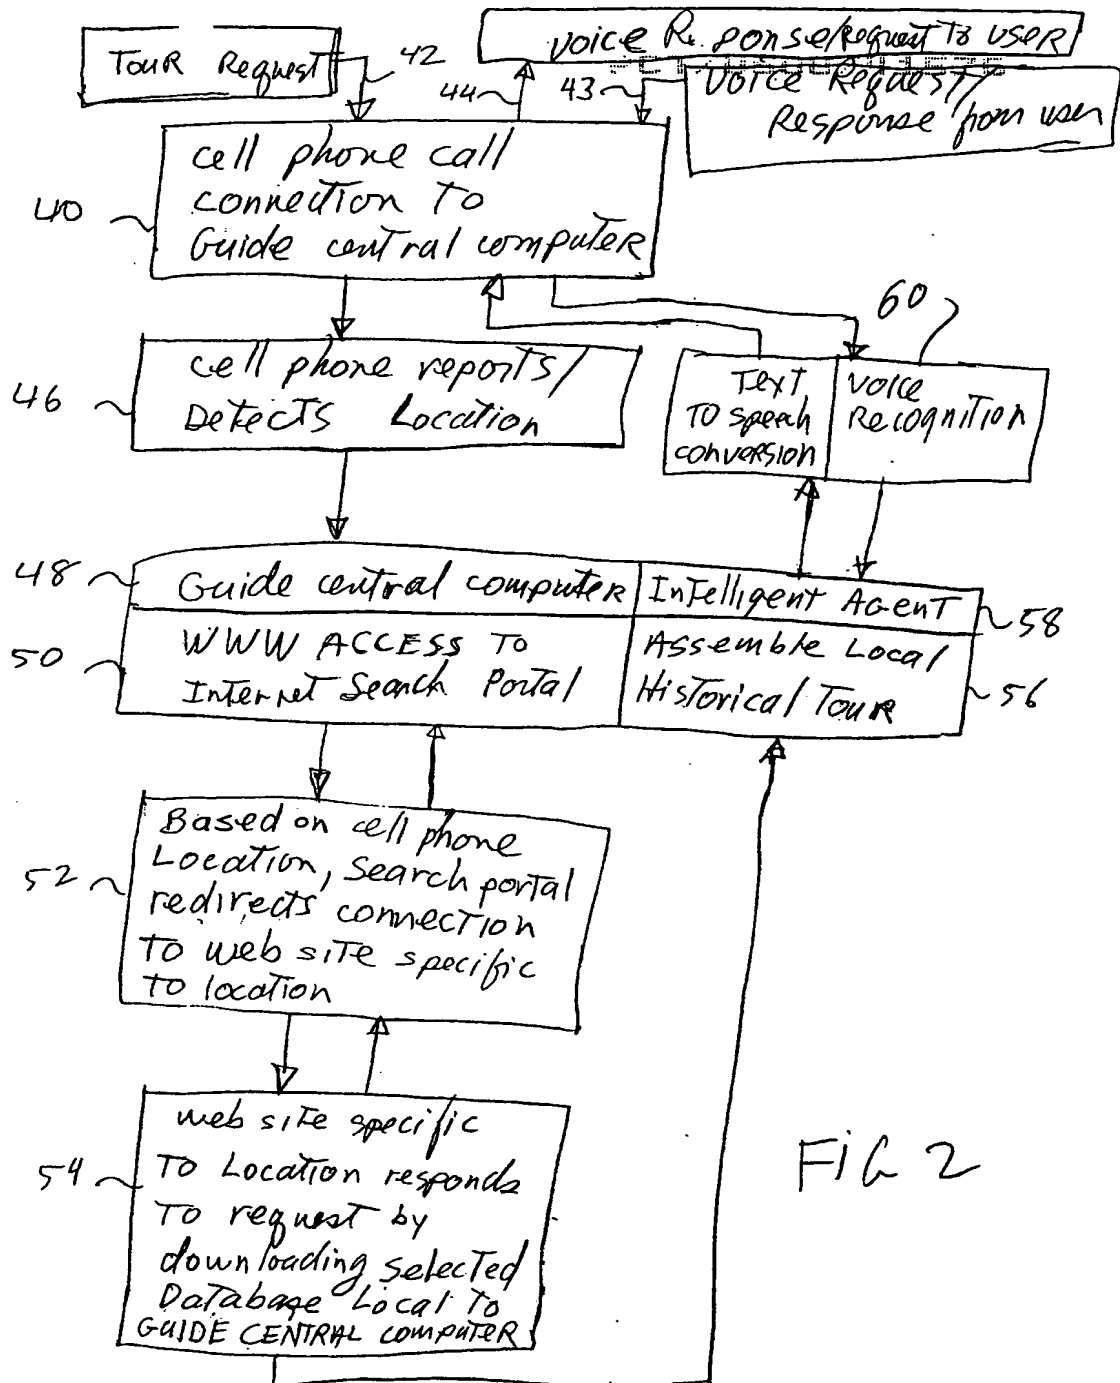 Tour Request
42
Voice R. ponse/Request To user
44
43
Voice Request/
Response from user
40
cell phone call
connection To
Guide central computer
60
46
cell phone reports/
Detects Location
Text
To speech
conversion
Voice
Recognition
48
Guide central computer
Intelligent Agent
58
50
WWW ACCESS To
Internet Search Portal
Assemble Local
Historical Tour
56
52
Based on cell phone
Location, Search portal
redirects connection
To web site specific
to location
54
web site specific
To Location responds
To request by
downloading selected
Database Local To
GUIDE CENTRAL computer
FIG 2